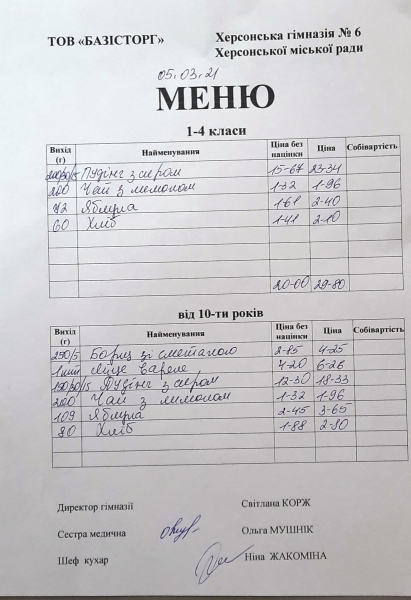 ТОВ «БАЗІСТОРГ» Херсонська гімназія № 6
Херсонської міської ради
05.03.21
МЕНЮ
1-4 класи
Вихід (г) Найменування Ціна без націнки Ціна Собівартість
Пудінг з сиром 15-67 23-34
200 Чай з лимоном 1-32 1-96
72 Яблука 1-61 2-40
60 Хліб 1-41 2-10
20-00 29-80
від 10-ти років
Вихід (г) Найменування Ціна без націнки Ціна Собівартість
250/5 Борщ зі сметаною 2-85 4-25
1 шт Яйце варене 4-20 6-26
Пудінг з сиром 12-30 18-33
200 Чай з лимоном 1-32 1-96
109 Яблука 2-45 3-65
80 Хліб 1-88 2-80
Директор гімназії Світлана КОРЖ
Сестра медична Ольга МУШНІК
Шеф кухар Ніна ЖАКОМІНА